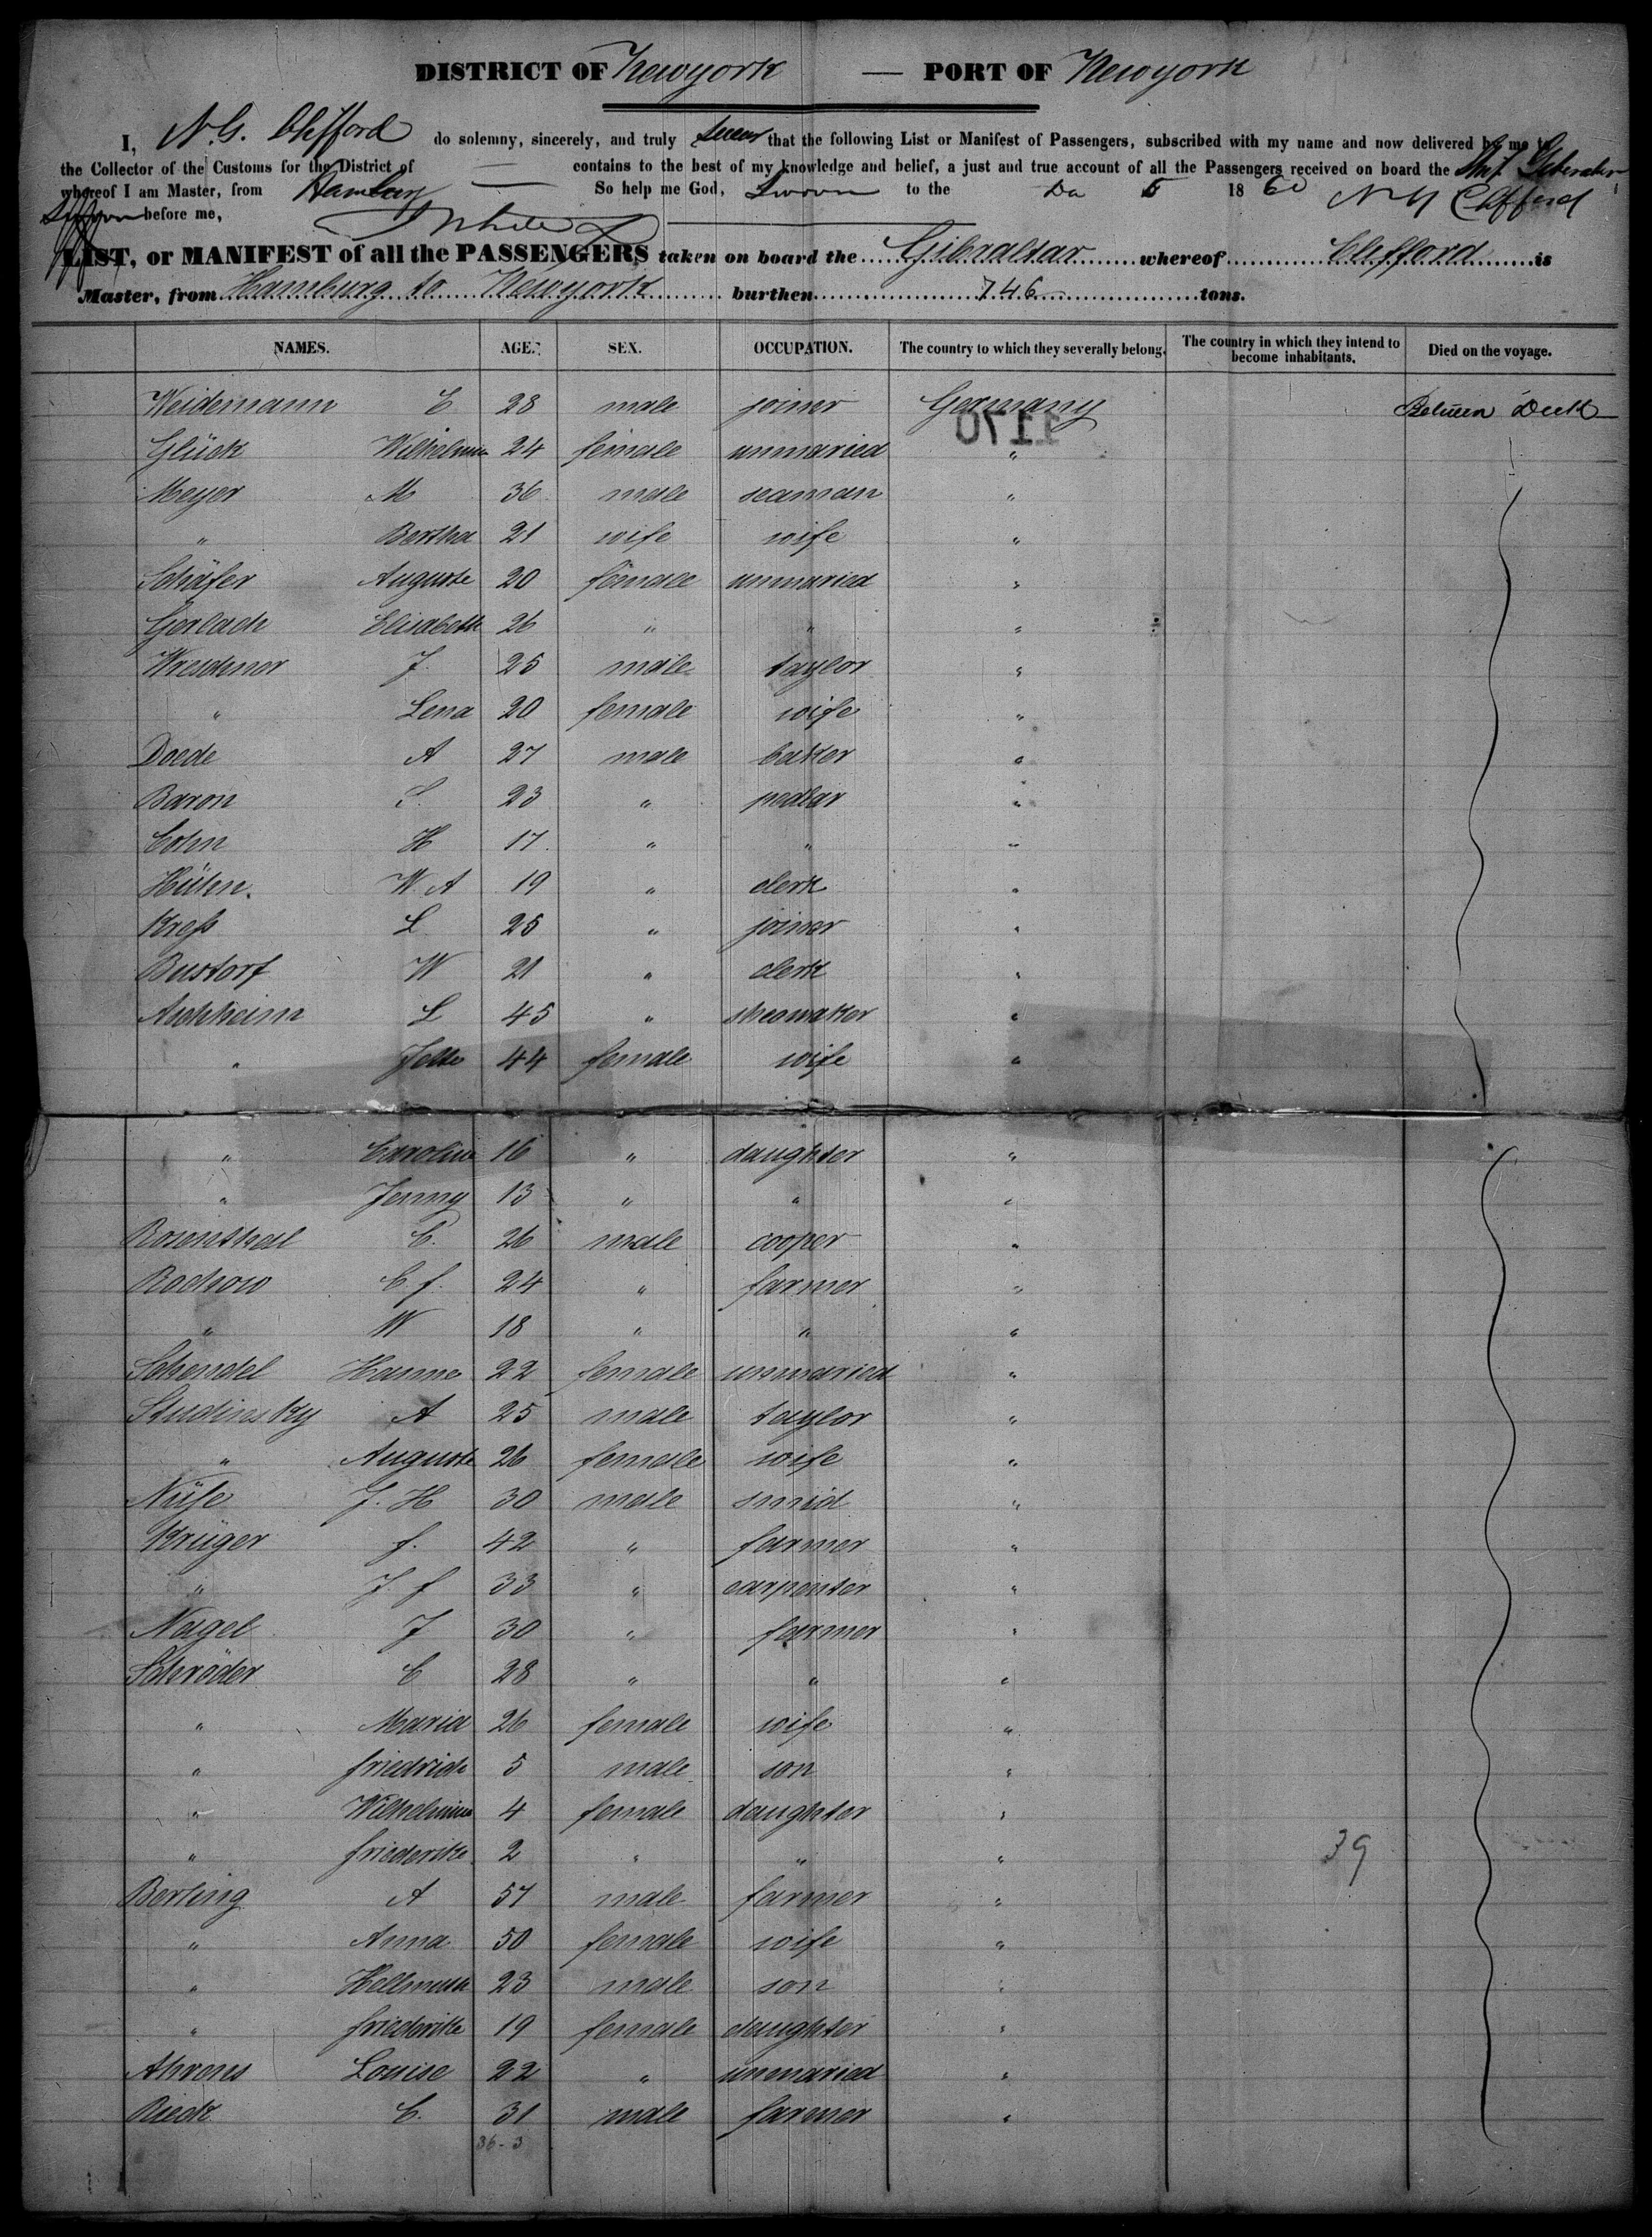 DISTRICT OF Newyork — PORT OF Newyork
I, N.G. Clifford do solemny, sincerely, and truly swear that the following List or Manifest of Passengers, subscribed with my name and now delivered by me to
the Collector of the Customs for the District of — contains to the best of my knowledge and belief, a just and true account of all the Passengers received on board the Ship Gibraltar
whereof I am Master, from Hamburg — So help me God, Sworn to the 5 1860 N G Clifford
before me,
LIST, or MANIFEST of all the PASSENGERS taken on board the Gibraltar whereof Clifford is
Master, from Hamburg to Newyork burthen 746 tons.
NAMES. AGE. SEX. OCCUPATION. The country to which they severally belong. The country in which they intend to become inhabitants. Died on the voyage.
Weidemann C 28 male joiner Germany Between Deck
1170
Glück Wilhelmine 24 female unmaried "
Meyer M 36 male seaman "
" Bertha 21 wife wife "
Schäfer Auguste 20 female unmaried "
Gerlach Elisabeth 26 " " "
J. 25 male taylor "
" Lena 20 female wife "
Doede A 27 male baker "
Baron S. 23 " pedlar "
Cohn H 17 " " "
Hühn. W. A 19 " clerk "
Kreß L 25 " joiner "
Bustorf W 21 " clerk "
Aschheim L 45 " sheomaker "
" Jette 44 female wife "
" Caroline 16 " daughter "
" Jenny 13 " " "
Rosenthal C. 26 male cooper "
Rochow C. f. 24 " farmer "
" W 18 " " "
Schendel Hanne 22 female unmaried "
Studinsky A 25 male taylor "
" Auguste 26 female wife "
Nüße J. H 30 male smid "
Krüger f. 42 " farmer "
" J. f 33 " carpenter "
Nagel J 30 " farmer "
Schröder C 28 " " "
" Maria 26 female wife "
" friedrich 5 male son "
" Wilhelmine 4 female daughter "
" friederike 2 " " "
39
Berling A 57 male farmer "
" Anna 50 female wife "
" Hellmuth 23 male son "
" friederike 19 female daughter "
Ahrens Louise 22 " unmaried "
Rieck C. 31 male farmer "
36-3